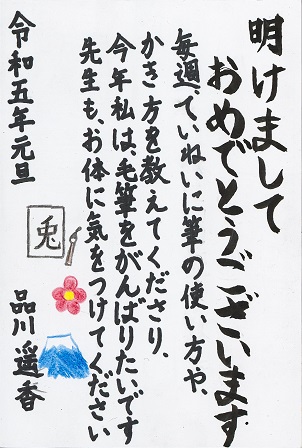 明けまして
おめでとうございます
毎週、ていねいに筆の使い方や、
かき方を教えてくださり、
今年私は、毛筆をがんばりたいです
先生も、お体に気をつけてください
令和五年元旦
兎
品川遥香